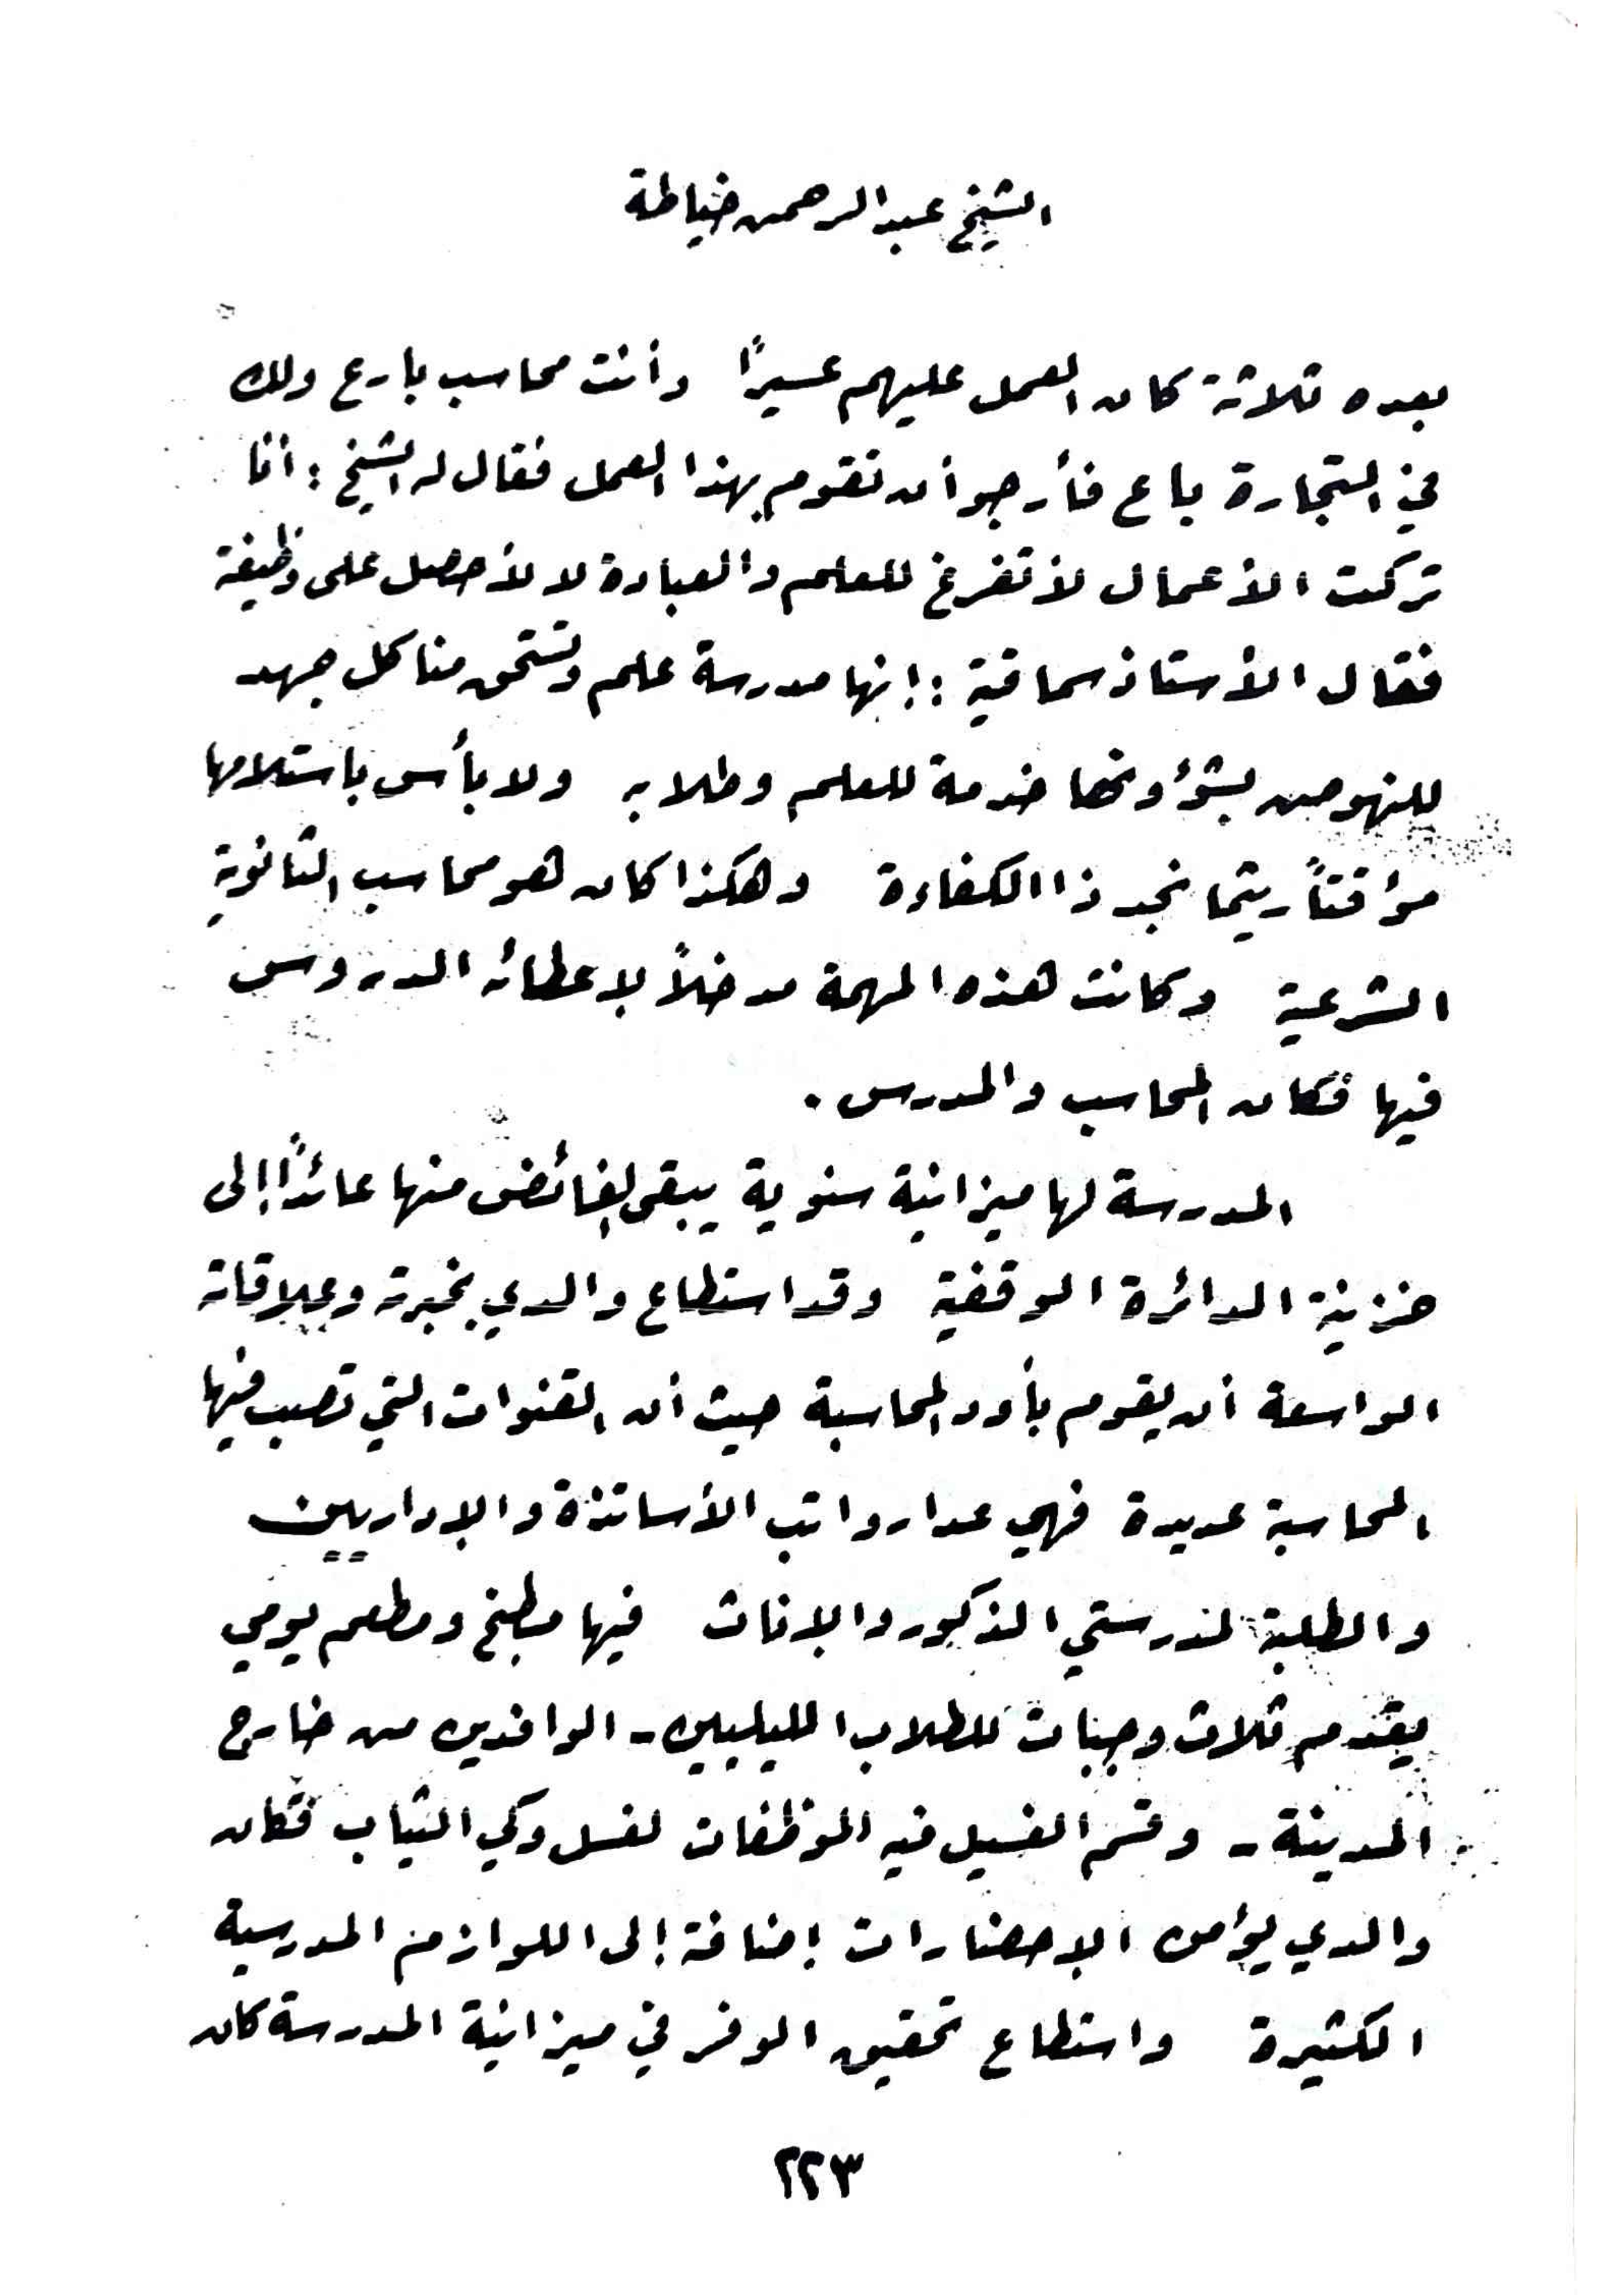 الشيخ عبد الرحمن خياطة
بعده ثلاثة كان العمل عليهم عسيراً وأنت محاسب بارع ولك
في التجارة باع فأرجو أن تقوم بهذا العمل فقال له الشيخ : أنا
تركت الأعمال لأتفرغ للعلم والعبادة لا لأحصل على وظيفة
فقال الأستاذ سماقية : إنها مدرسة علم وتستحق منا كل جهد
للنهوض بشؤونها خدمة للعلم وطلابه ولا بأس باستلامها
مؤقتاً ريثما نجد ذا الكفاءة وهكذا كان هو محاسب الثانوية
الشرعية وكانت هذه المهمة مدخلاً لإعطائه الدروس
فيها فكان المحاسب والمدرس .
المدرسة لها ميزانية سنوية يبقى الفائض منها عائداً إلى
خزينة الدائرة الوقفية وقد استطاع والدي بخبرته وعلاقاته
الواسعة أن يقوم بأود المحاسبة حيث أن القنوات التي تصب فيها
المحاسبة عديدة فهي عدا رواتب الأساتذة والإداريين
والطلبة لمدرستي الذكور والإناث فيها مطبخ ومطعم يومي
يقدم ثلاث وجبات للطلاب الليليين - الوافدين من خارج
المدينة - وقسم الغسيل فيه الموظفات لغسل وكي الثياب فكان
والدي يؤمن الإحضارات إضافة إلى اللوازم المدرسية
الكثيرة واستطاع تحقيق الوفر في ميزانية المدرسة كان
٢٢٣